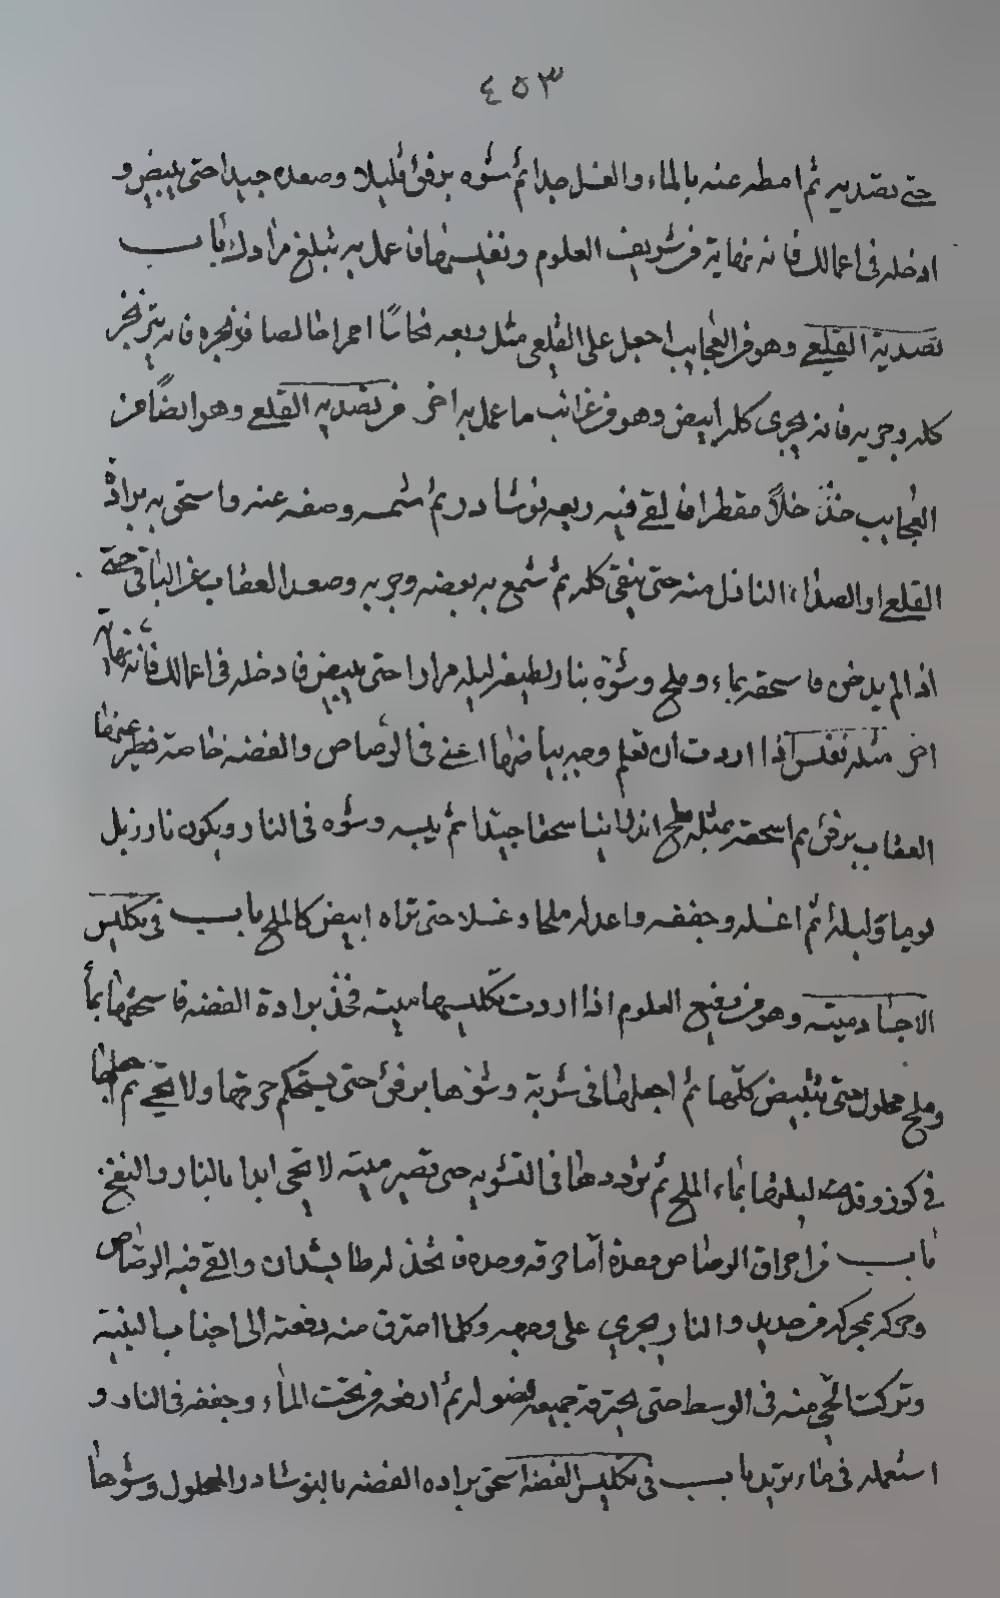 ٤٥٣
حتى تصديه ثم امطه عنه بالماء والغسل جدا ثم شوه برفق قليلا وصعده جيدا حتى يبيض و
ادخله فى اعمالك فانه نهاية من شريف العلوم ونفيسها فاعمل به تبلغ مرادك باب
تصدية القلعى وهو من العجايب اجعل على القلعى مثل ربعه نحاسا احمرا خالصا فانه يتزنجر
كله وجربه فانه يجرى كله ابيض وهو من غرائب ما عمل به اخر من تصديه القلعى وهو ايضا من
العجايب خذ خلا مقطرا فالقى فيه ربعه نوشادر ثم شمسه وصفه عنه واستحق به برادة
القلعى او الصداء النازل منه حتى ينقى كله ثم شمع به بعضه وجربه وصعد العقاب عن الباقى حتى
اذا لم يدخن فاسحقه بماء وملح وشوه بنار لطيفه ليله مرارا حتى يبيض فادخله فى اعمالك فانه نهاية
اخر مثله نفيس اذا اردت ان تعلم وجه بياضها اعنى فى الرصاص والفضه خاصة فطير عنها
العقاب برفق ثم اسحقه بمثله ملح اندرانيا سحقا جيدا ثم يبسه وشوه فى النار ويكون نار زبل
يوما وليلة ثم اغسله وجففه واعد له ملحا وغسلا حتى تراه ابيض كالملح باب فى تكليس
الاجساد ميته وهو من رفيع العلوم اذا اردت تكليسها ميته فخذ برادة الفضه فاسحقها بماء
وملح محلول حتى تبيض كلها ثم اجعلها فى شوية وشوها برفق حتى يستحكم حرقها ولا تحيى ثم اجعلها
فى كوز وقد ليلها بماء الملح ثم تردد ها فى التشويه حتى تصير ميته لا تحيى ابدا بالنار والنفخ
باب من احراق الرصاص مفردة اما حرقه وحده فاتخذ له طابشدان والقى فيه الرصاص
وحركه بمحركه من حديد والنار يجرى على وجهه وكلما احترق منه دفعته الى اجناب البنية
وتركت الحى منه فى الوسط حتى يحترق جميعه ثم ارفعه من تحت الماء وجففه فى النار و
استعمله فى ماء تريد باب فى تكليس الفضه استحق براده الفضه بالنوشادر المحلول وشوها